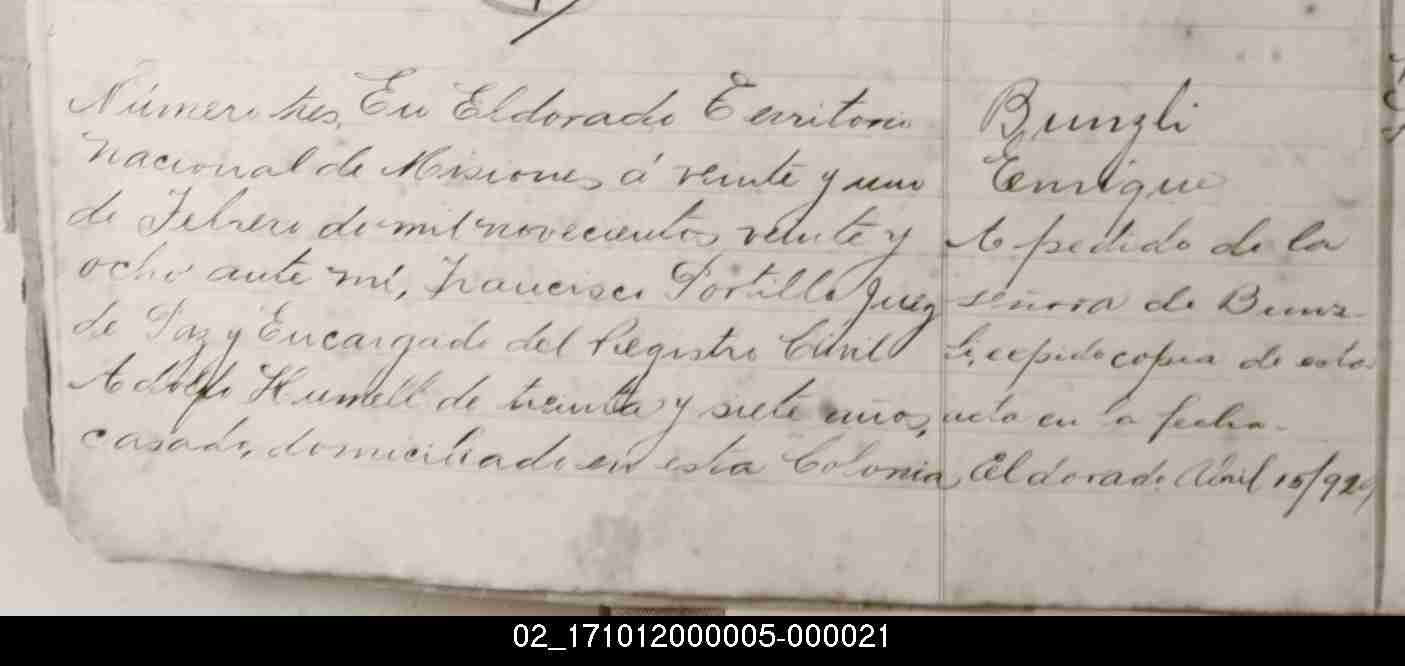 Número tres. En Eldorado Territorio
Nacional de Misiones á veinte y uno
de Febrero de mil novecientos veinte y
ocho ante mí, Francisco Portillo Juez
de Paz y Encargado del Registro Civil
Adolfo Humell de treinta y siete años,
casado, domiciliado en esta Colonia,
Bunzli
Enrique
A pedido de la
señora de Bunz-
li, expido copia de esta
acta en la fecha.
Eldorado Abril 15/929
02_171012000005-000021